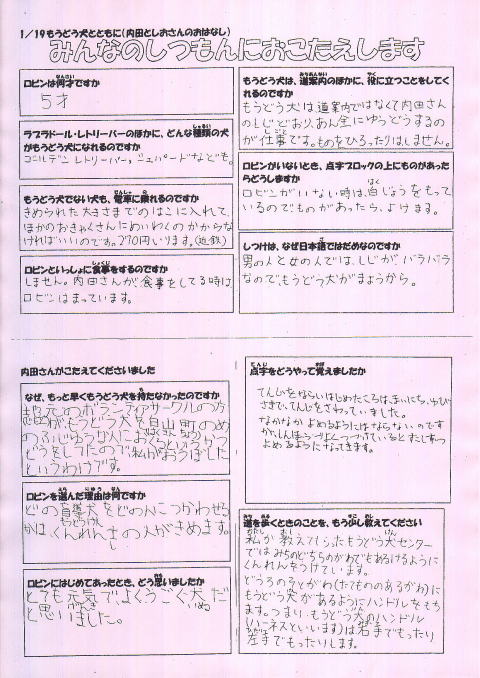 1/19もうどう犬とともに(内田としおさんのおはなし)
みんなのしつもんにおこたえします
ロビンは何才ですか
5才
ラブラドール・レトリーバーのほかに、どんな種類の犬
がもうどう犬になれるのですか
ゴールデンレトリーバー、シェパードなども。
もうどう犬でない犬も、電車に乗れるのですか
きめられた大きさまでのはこに入れて、
ほかのおきゃくさんにめいわくのかからな
ければいいのです。270円いります。(近鉄)
ロビンといっしょに食事をするのですか
しません。内田さんが食事をしてる時は
ロビンはまっています。
もうどう犬は、道案内のほかに、役に立つことをしてく
れるのですか
もうどう犬は道案内ではなくて内田さん
のしじどおり、あん全にゆうどうするの
が仕事です。ものをひろったりはしません。
ロビンがいないとき、点字ブロックの上にものがあった
らどうしますか
ロビンがいない時は、白じょうをもって
いるのでものがあったら、よけます。
しつけは、なぜ日本語ではだめなのですか
男の人と女の人では、しじがバラバラ
なのでもうどう犬がまようから。
内田さんがこたえてくださいました
なぜ、もっと早くもうどう犬を持たなかったのですか
地元のボランティアサークルの方
がもうどう犬を白山町のめ
のふじゆうな人におくろうというかつ
どうをしてたので私がおうぼした
というわけです。
ロビンを選んだ理由は何ですか
どの盲導犬をどの人につかわせる
かは、くんれんしの人がきめます。
ロビンにはじめてあったとき、どう思いましたか
とても元気で、よくうごく犬だ
と思いました。
点字をどうやって覚えましたか
てんじをならいはじめたころは、まいにち、ゆび
さきで、てんじをさわっていました。
なかなかよめるようにはならないのです
が、しんぼうづよくつづけているとすこしずつ
よめるようになってきます。
道を歩くときのことを、もう少し教えてください
私が教えてもらったもうどう犬センター
ではみちのどちらのがわでもあるけるように
くんれんをつけています。
どうろのそとがわ(たてもののあるがわ)に
もうどう犬があるようにハンドルをもち
ます。つまり、もうどう犬のハンドル
(ハーネスといいます)は右手でもったり
左手でもったりします。